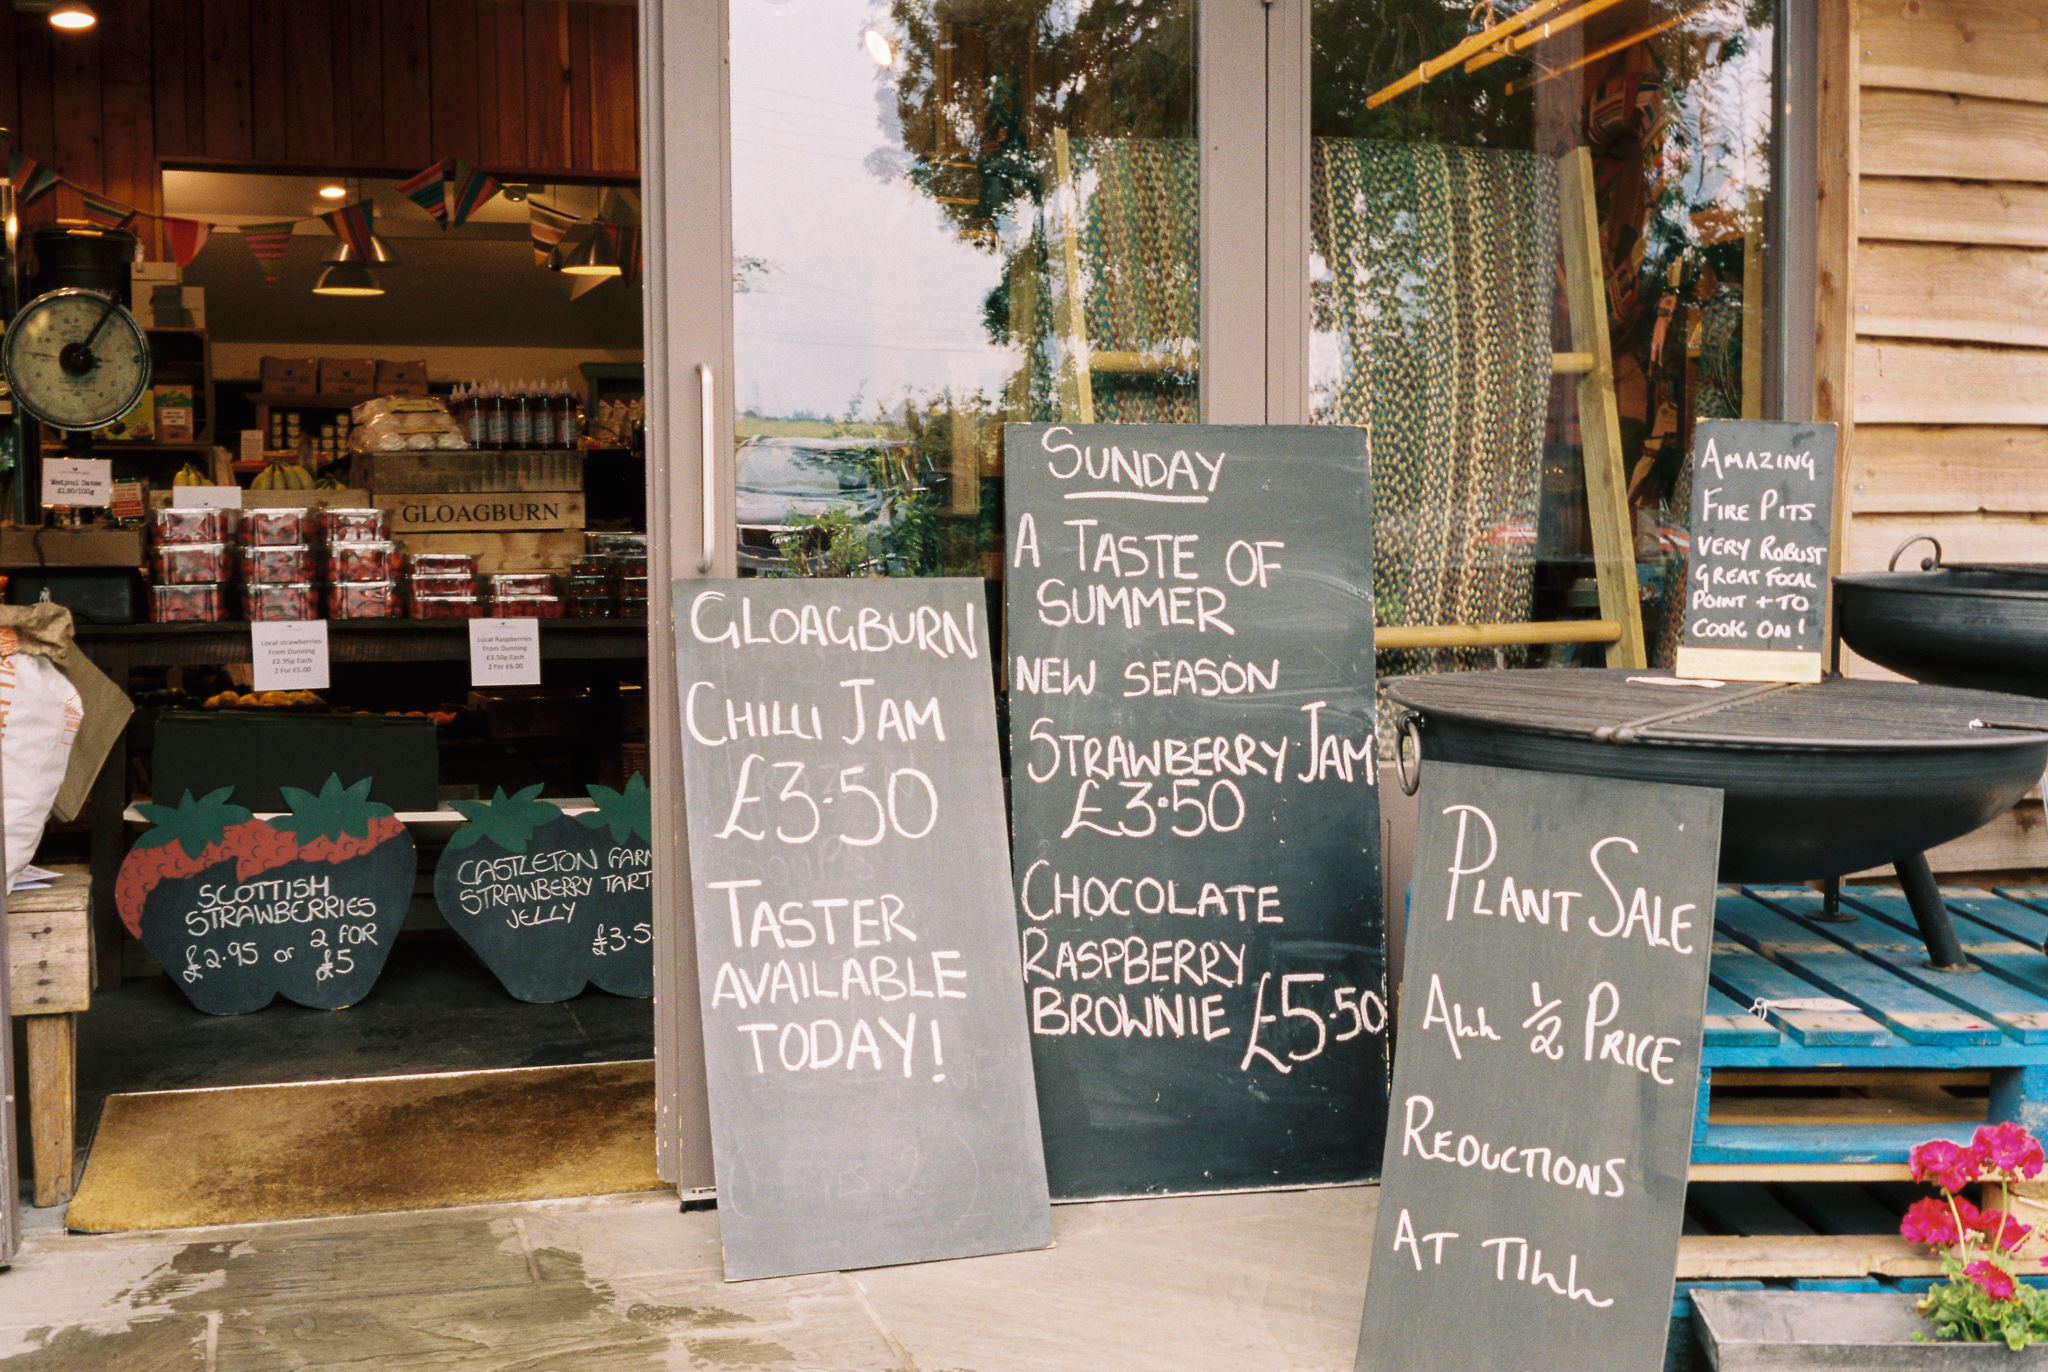 Medjoul Dates
£1.80/100g
GLOAGBURN
Local strawberries
From Dunning
£2.95p Each
2 For £5.00
Local Raspberries
From Dunning
£3.50p Each
2 For £6.00
SCOTTISH
STRAWBERRIES
£2.95 or 2 FOR
£5
CASTLETON FARM
STRAWBERRY TART
JELLY
£3.5
GLOAGBURN
CHILLI JAM
£3.50
TASTER
AVAILABLE
TODAY!
SUNDAY
A TASTE OF
SUMMER
NEW SEASON
STRAWBERRY JAM
£3.50
CHOCOLATE
RASPBERRY
BROWNIE £5.50
AMAZING
FIRE PITS
VERY ROBUST
GREAT FOCAL
POINT + TO
COOK ON!
PLANT SALE
ALL 1/2 PRICE
REDUCTIONS
AT TILL